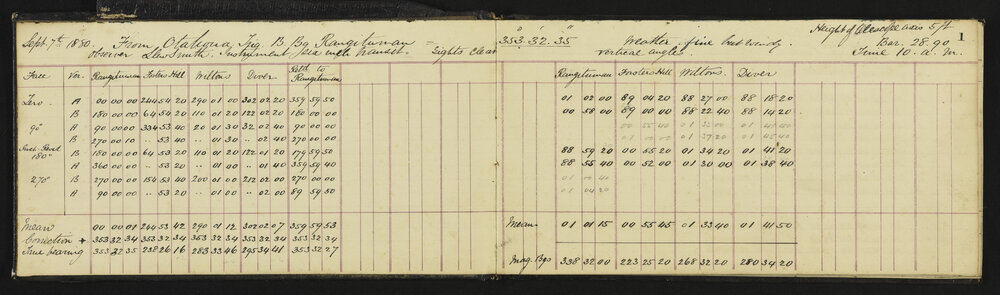 Height of Telescope axis 5 ft 1
Sept. 7th 1880. From Otahequa, Trig B. Bg Rangituman = 353° 32' 35" Weather fine but windy Bar. 28.90
Observer Llew Smith. Instrument, sea with Sights Clear vertical angles Time 10. a. m.
Face Ver. Rangituman Fosters Hill Wiltons Diver Retd to Rangituman Rangituman Fosters Hill Wiltons Diver
Zero. A 00 00 00 244 54 20 290 01 00 302 02 20 359 59 50 01 02 00 89 04 20 88 27 00 88 18 20
B 180 00 00 64 54 20 110 01 20 122 02 20 180 00 00 00 58 00 89 00 00 88 22 40 88 14 20
90° A 90 00 00 334 53 40 20 01 30 32 02 40 90 00 00 00 55 40
B 270 00 10 .. 53 40 .. 01 30 .. 02 40 270 00 00 01 37 20 01 45 40
180° B 180 00 00 64 53 20 110 01 20 122 01 20 179 59 50 88 59 20 00 55 20 01 34 20 01 41 20
A 360 00 00 .. 53 20 .. 01 00 .. 01 40 359 59 40 88 55 40 00 52 00 01 30 00 01 38 40
270° B 270 00 00 154 53 40 200 01 00 212 02 00 270 00 00
A 90 00 00 .. 53 20 .. 01 00 .. 02 00 89 59 50 01 04 20
Mean 00 00 01 244 53 42 290 01 12 302 02 07 359 59 53 Mean 01 01 15 00 55 45 01 33 40 01 41 50
Correction + 353 32 34 353 32 34 353 32 34 353 32 34 353 32 34
True bearing 353 32 35 238 26 16 283 33 46 295 34 41 353 32 27 Mag. Bgs 338 32 00 223 25 20 268 32 20 280 34 20